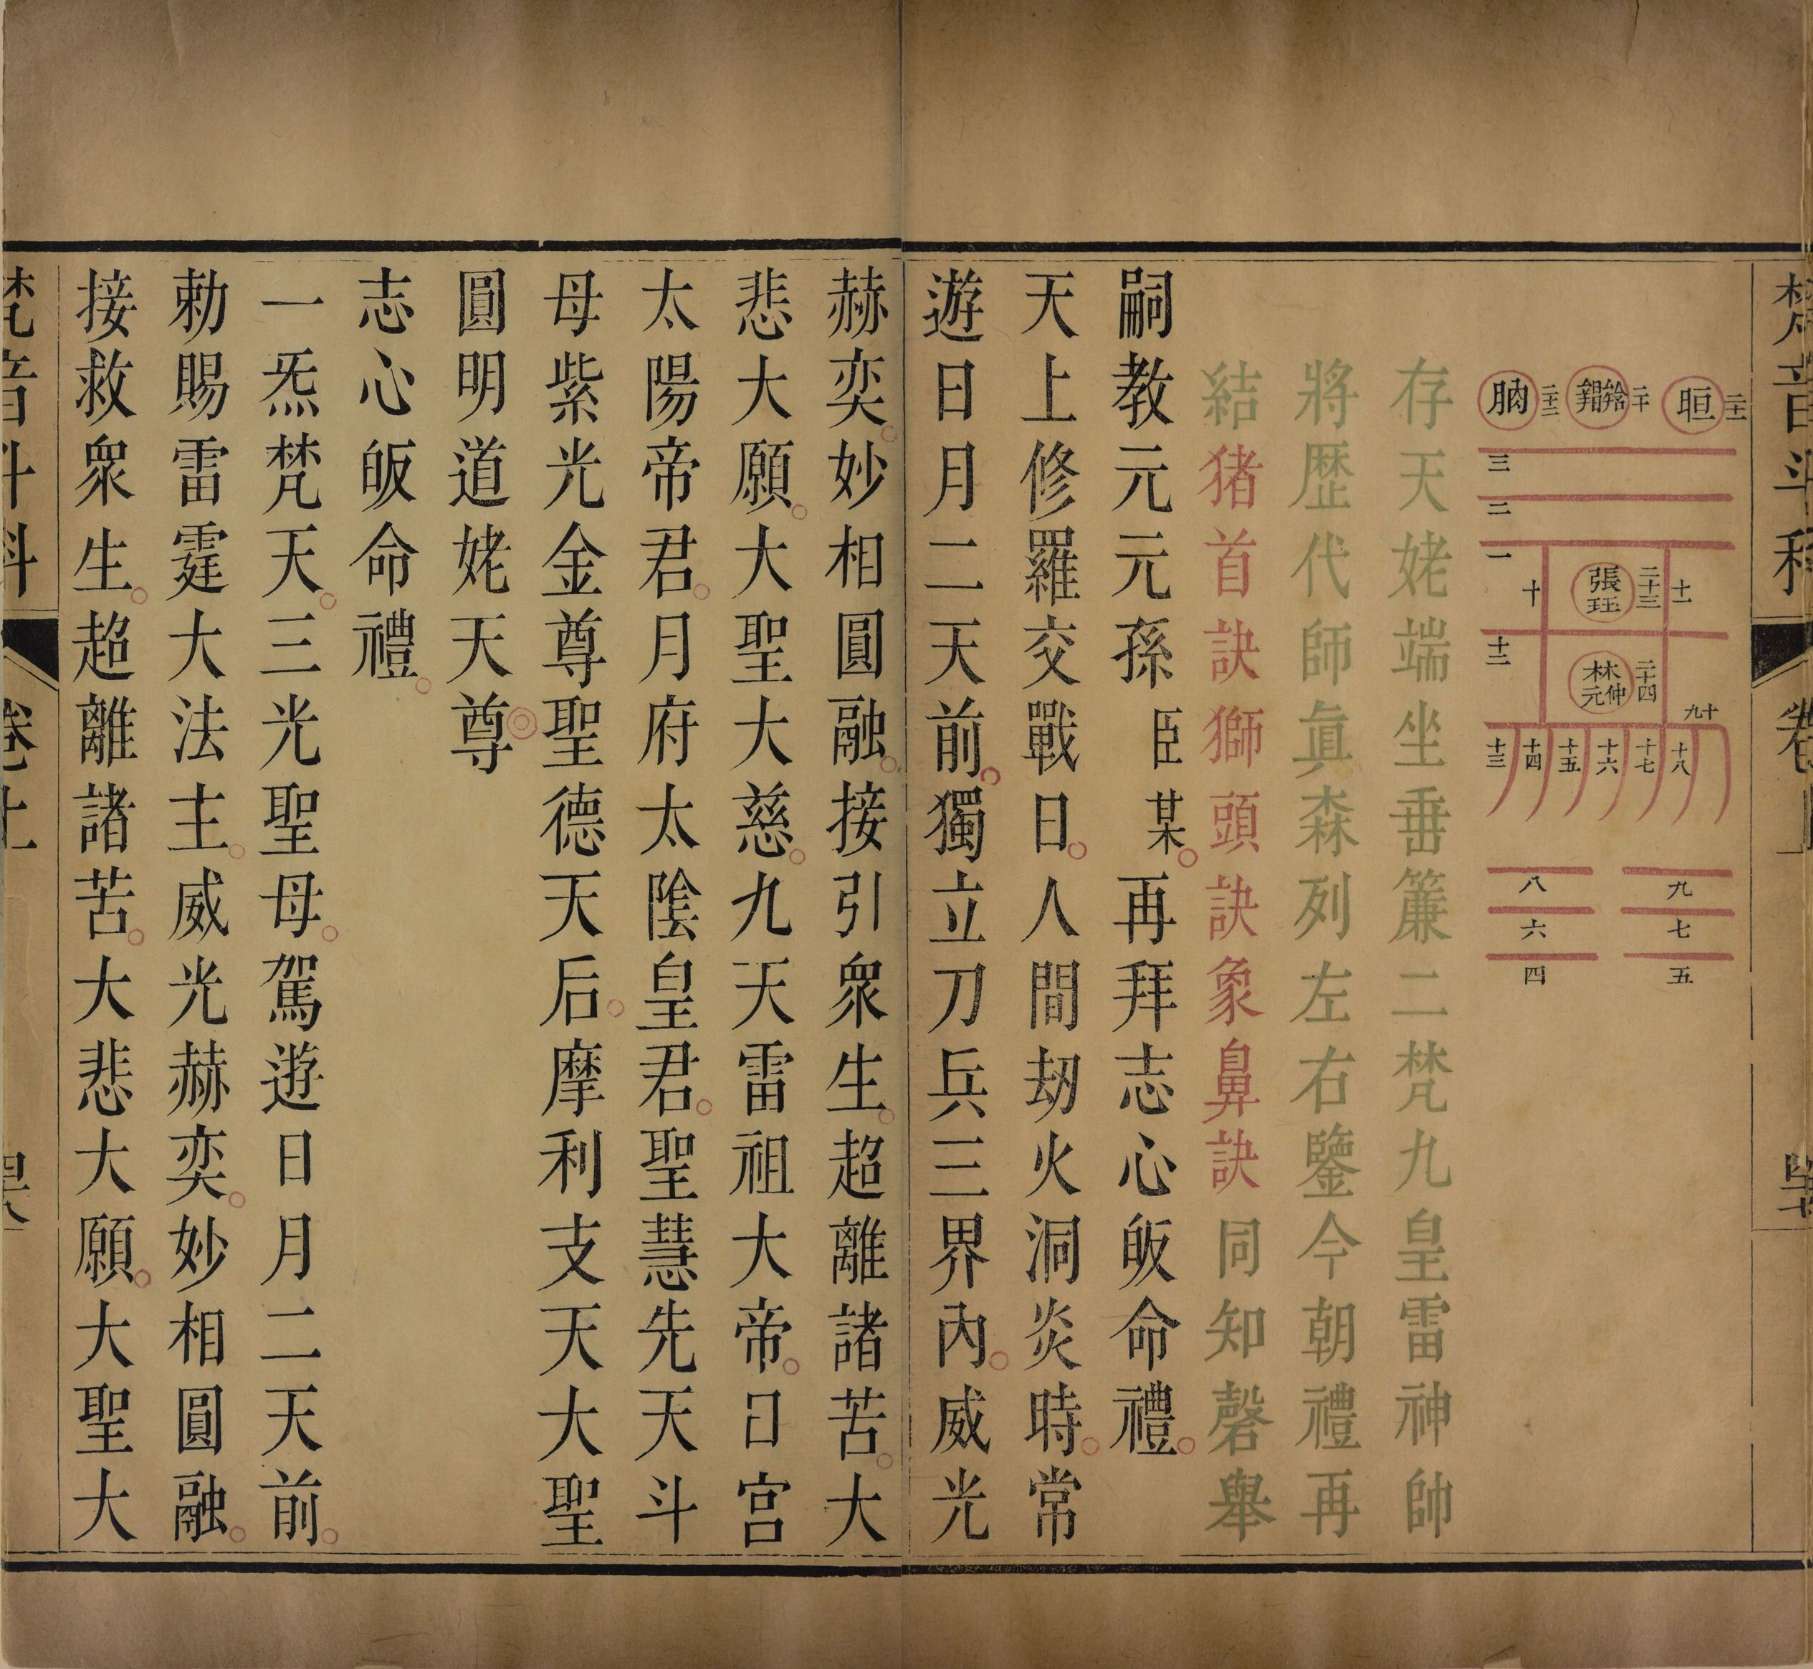 梵音斗科
卷上
晅 二十一
二十
腩 二十二
三
二
一
十
張珏 二十三
十一
十二
林仲元 二十四
十九
十三 十四 十五 十六 十七 十八
八 九
六 七
四 五
存天姥端坐垂簾二梵九皇雷神帥
將歷代師眞森列左右鑒今朝禮再
結猪首訣獅頭訣象鼻訣同知磬舉
嗣教元元孫臣某再拜志心皈命禮
天上修羅交戰日人間劫火洞炎時常
遊日月二天前獨立刀兵三界內威光
赫奕妙相圓融接引衆生超離諸苦大
悲大願大聖大慈九天雷祖大帝日宮
太陽帝君月府太陰皇君聖慧先天斗
母紫光金尊聖德天后摩利支天大聖
圓明道姥天尊
志心皈命禮
一炁梵天三光聖母駕遊日月二天前
勅賜雷霆大法主威光赫奕妙相圓融
接救衆生超離諸苦大悲大願大聖大
梵音斗科
卷上